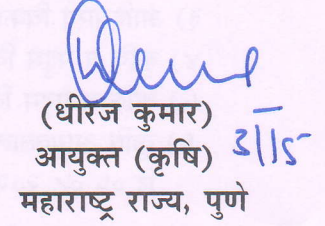 (धीरज कुमार)
आयुक्त (कृषि)
महाराष्ट्र राज्य, पुणे